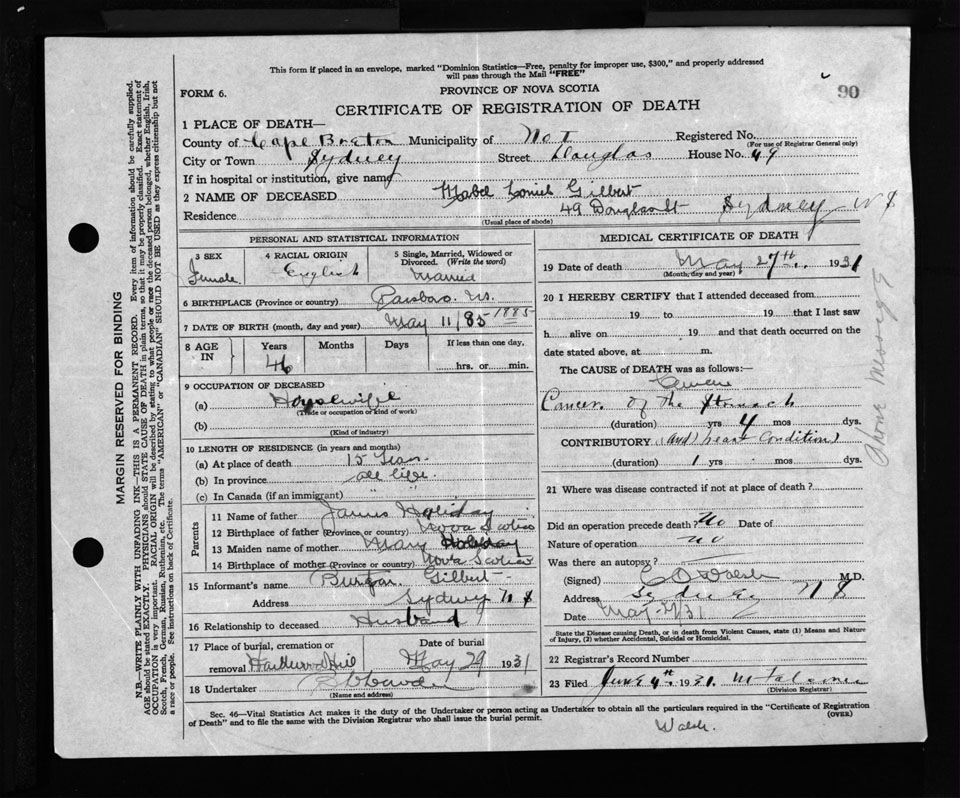 This form if placed in an envelope, marked "Dominion Statistics—Free, penalty for improper use, $300," and properly addressed
will pass through the Mail "FREE"
90
FORM 6.
PROVINCE OF NOVA SCOTIA
CERTIFICATE OF REGISTRATION OF DEATH
1 PLACE OF DEATH—
County of Cape Breton Municipality of Registered No.
(For use of Registrar General only)
City or Town Sydney Street Douglas House No. 49
If in hospital or institution, give name
2 NAME OF DECEASED Mabel Gilbert
Residence 49 Douglas St Sydney N S
(Usual place of abode)
PERSONAL AND STATISTICAL INFORMATION
3 SEX 4 RACIAL ORIGIN 5 Single, Married, Widowed or
Divorced. (Write the word)
Female English Married
6 BIRTHPLACE (Province or country) NS.
7 DATE OF BIRTH (month, day and year) May 11/85 1885
8 AGE IN Years Months Days If less than one day,
46 hrs. or min.
9 OCCUPATION OF DECEASED
(a) Housewife
(Trade or occupation or kind of work)
(b)
(Kind of industry)
10 LENGTH OF RESIDENCE (in years and months)
(a) At place of death 15 Years
(b) In province all life
(c) In Canada (if an immigrant) " "
Parents
11 Name of father James Holiday
12 Birthplace of father (Province or country) Nova Scotia
13 Maiden name of mother Mary
14 Birthplace of mother (Province or country) Nova Scotia
15 Informant's name Gilbert
Address Sydney N S
16 Relationship to deceased Husband
17 Place of burial, cremation or Date of burial
removal Hardwood Hill May 29 1931
18 Undertaker
(Name and address)
MEDICAL CERTIFICATE OF DEATH
19 Date of death May 27th 1931
(Month, day and year)
20 I HEREBY CERTIFY that I attended deceased from
19 to 19 that I last saw
h alive on 19 and that death occurred on the
date stated above, at m.
The CAUSE of DEATH was as follows:—
Cancer of the Stomach
(duration) yrs 4 mos dys.
CONTRIBUTORY (and heart condition)
(duration) 1 yrs mos dys.
21 Where was disease contracted if not at place of death?
Did an operation precede death? No Date of
Nature of operation no
Was there an autopsy?
(Signed) Walsh M.D.
Address Sydney N S
Date May 31
State the Disease causing Death, or in death from Violent Causes, state (1) Means and Nature
of Injury, (2) whether Accidental, Suicidal or Homicidal.
22 Registrar's Record Number
23 Filed June 4th 1931
(Division Registrar)
Sec. 46—Vital Statistics Act makes it the duty of the Undertaker or person acting as Undertaker to obtain all the particulars required in the "Certificate of Registration
of Death" and to file the same with the Division Registrar who shall issue the burial permit. (OVER)
Walsh.
MARGIN RESERVED FOR BINDING
N.B.—WRITE PLAINLY WITH UNFADING INK—THIS IS A PERMANENT RECORD. Every item of information should be carefully supplied.
AGE should be stated EXACTLY. PHYSICIANS should STATE CAUSE OF DEATH in plain terms, so that it may be properly classified. Exact statement of
OCCUPATION is very important. RACIAL ORIGIN will be described by stating to what people or race the deceased person belonged, whether English, Irish,
Scotch, French, German, Russian, Ruthenian, etc. The terms "AMERICAN" or "CANADIAN" SHOULD NOT BE USED as they express citizenship but not
a race or people. See instructions on back of Certificate.